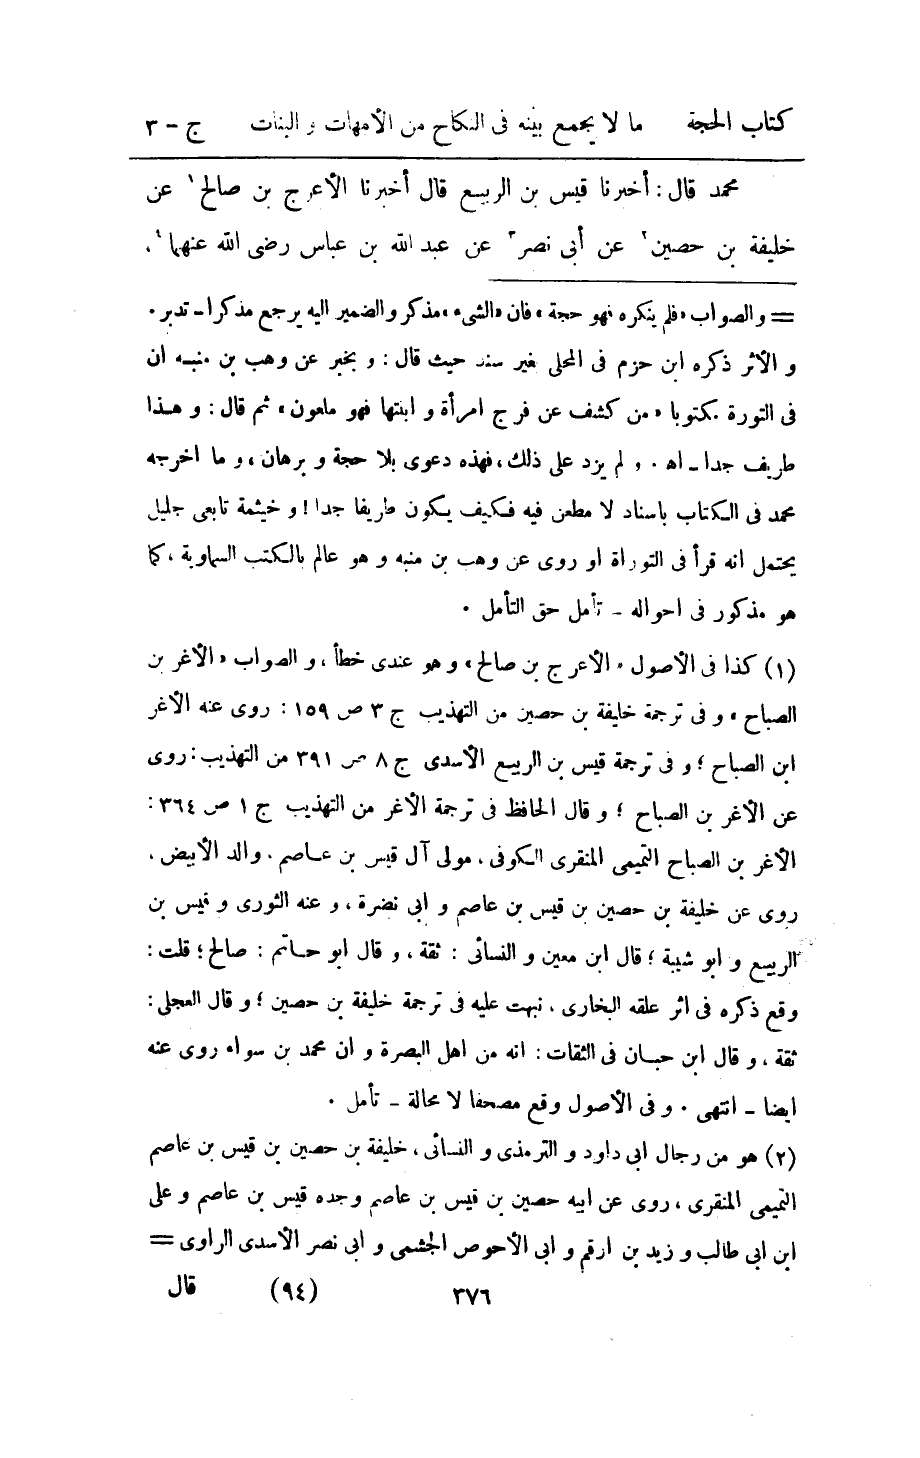 كتاب الحجة ما لا يجمع بينه فى النكاح من الأمهات و البنات ج - ٣
محمد قال : أخبرنا قيس بن الربيع قال أخبرنا الأعرج بن صالح ١ عن
خليفة بن حصين ٢ عن أبى نصر ٣ عن عبد الله بن عباس رضى الله عنهما ٤،
= و الصواب «فلم ينكره فهو حجة» فان «الشىء» مذكر و الضمير اليه يرجع مذكرا ـ تدبر .
و الأثر ذكره ابن حزم فى المحلى بغير سند حيث قال : و بخبر عن وهب بن منبه ان
فى التورة مكتوبا «من كشف عن فرج امرأة و ابنتها فهو ملعون» ثم قال : و هذا
طريف جدا ـ اه . و لم يزد على ذلك، فهذه دعوى بلا حجة و برهان، و ما اخرجه
محمد فى الكتاب باسناد لا مطعن فيه فكيف يكون طريفا جدا ! و خيثمة تابعى جليل
يحتمل انه قرأ فى التوراة او روى عن وهب بن منبه و هو عالم بالكتب السماوية، كما
هو مذكور فى احواله ـ تأمل حق التأمل .
(١) كذا فى الأصول «الأعرج بن صالح» و هو عندى خطأ، و الصواب «الأغر بن
الصباح» و فى ترجمة خليفة بن حصين من التهذيب ج ٣ ص ١٥٩ : روى عنه الأغر
ابن الصباح ؛ و فى ترجمة قيس بن الربيع الأسدى ج ٨ ص ٣٩١ من التهذيب : روى
عن الأغر بن الصباح ؛ و قال الحافظ فى ترجمة الأغر من التهذيب ج ١ ص ٣٦٤ :
الأغر بن الصباح التميمى المنقرى الكوفى، مولى آل قيس بن عاصم، والد الأبيض،
روى عن خليفة بن حصين بن قيس بن عاصم و ابى نضرة، و عنه الثورى و قيس بن
الربيع و ابو شيبة ؛ قال ابن معين و النسائى : ثقة، و قال ابو حاتم : صالح ؛ قلت :
وقع ذكره فى اثر علقه البخارى، نبهت عليه فى ترجمة خليفة بن حصين ؛ و قال العجلى :
ثقة، و قال ابن حبان فى الثقات : انه من اهل البصرة و ان محمد بن سواء روى عنه
ايضا ـ انتهى . و فى الأصول وقع مصحفا لا محالة ـ تأمل .
(٢) هو من رجال ابى داود و الترمذى و النسائى، خليفة بن حصين بن قيس بن عاصم
التميمى المنقرى، روى عن ابيه حصين بن قيس بن عاصم وجده قيس بن عاصم و على
ابن ابى طالب و زيد بن ارقم و ابى الأحوص الجشمى و ابى نصر الأسدى الراوى =
٣٧٦ (٩٤) قال